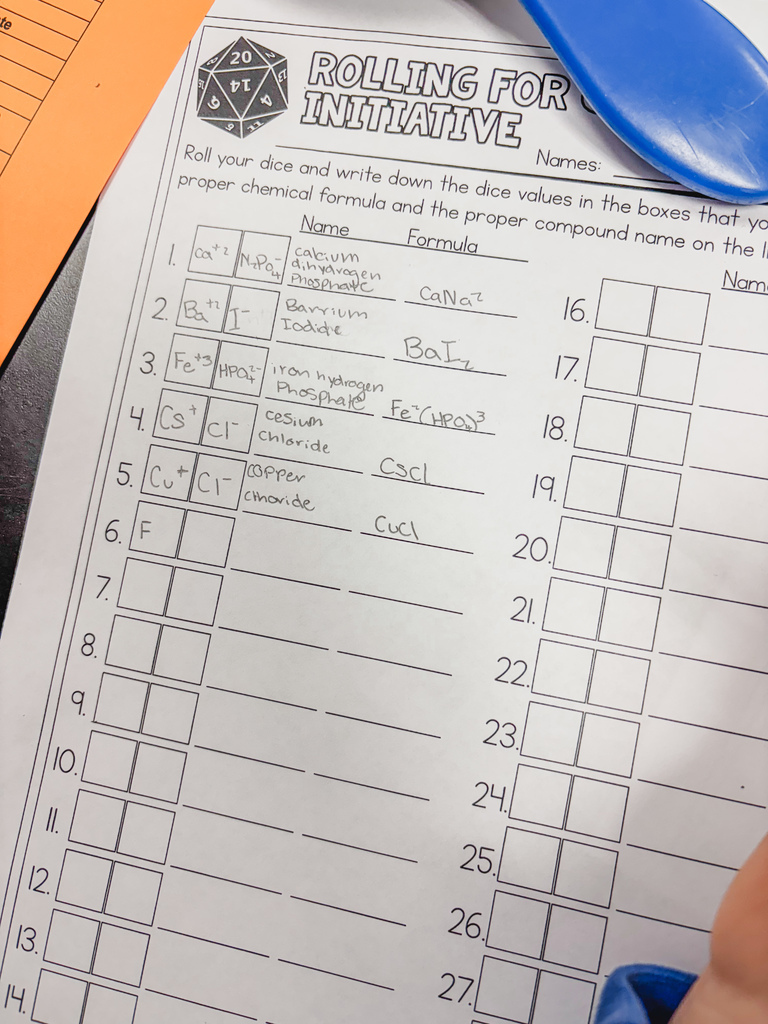 te
20
14
ROLLING FOR
INITIATIVE
Names:
Roll your dice and write down the dice values in the boxes that yo
proper chemical formula and the proper compound name on the li
Name Formula
1. Ca+2 N2PO4- calcium dihydrogen Phosphate CaNa2
2. Ba+2 I- Barrium Iodide BaI2
3. Fe+3 HPO42- iron hydrogen Phosphate Fe2(HPO4)3
4. Cs+ Cl- cesium chloride Cscl
5. Cu+ Cl- copper Cthoride Cucl
6. F
7.
8.
9.
10.
11.
12.
13.
14.
Nam
16.
17.
18.
19.
20.
21.
22.
23.
24.
25.
26.
27.